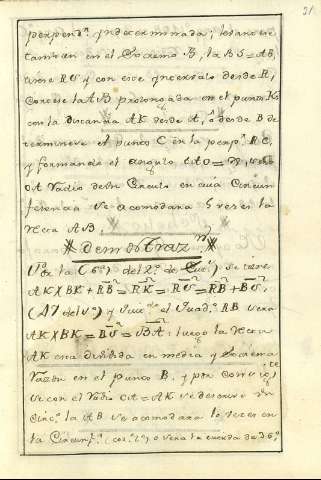 31.
perpend.r indeterminada; levantese
tambien en el extremo B, la BS = AB,
tirese RS y con este intervalo desde R,
cortese la AB prolongada en el punto K,
con la distancia AK desde A, ò desde B de
termínese el punto C en la perp.r RC,
y formando el angulo CAO =
OA Radio de un Circulo en cuia Circun
ferencia se acomodara 5 veses la
recta AB.
Demostraz.n
Por la (6.a) del 2.o de se tiene
AK × BK + RB² = RK² = RS² = RB² + BS²,
(47 del 1.o) y el quad.o RB sera
AK × BK = BS² = BA²: luego la recta
AK esta dividida en media y extrema
razon en el punto B. y por
se con el radio CA = AK se descrive un
Circ.o la AB se acomodara 10 veces en
la Circunf.a ò sera la cuerda de 36.o